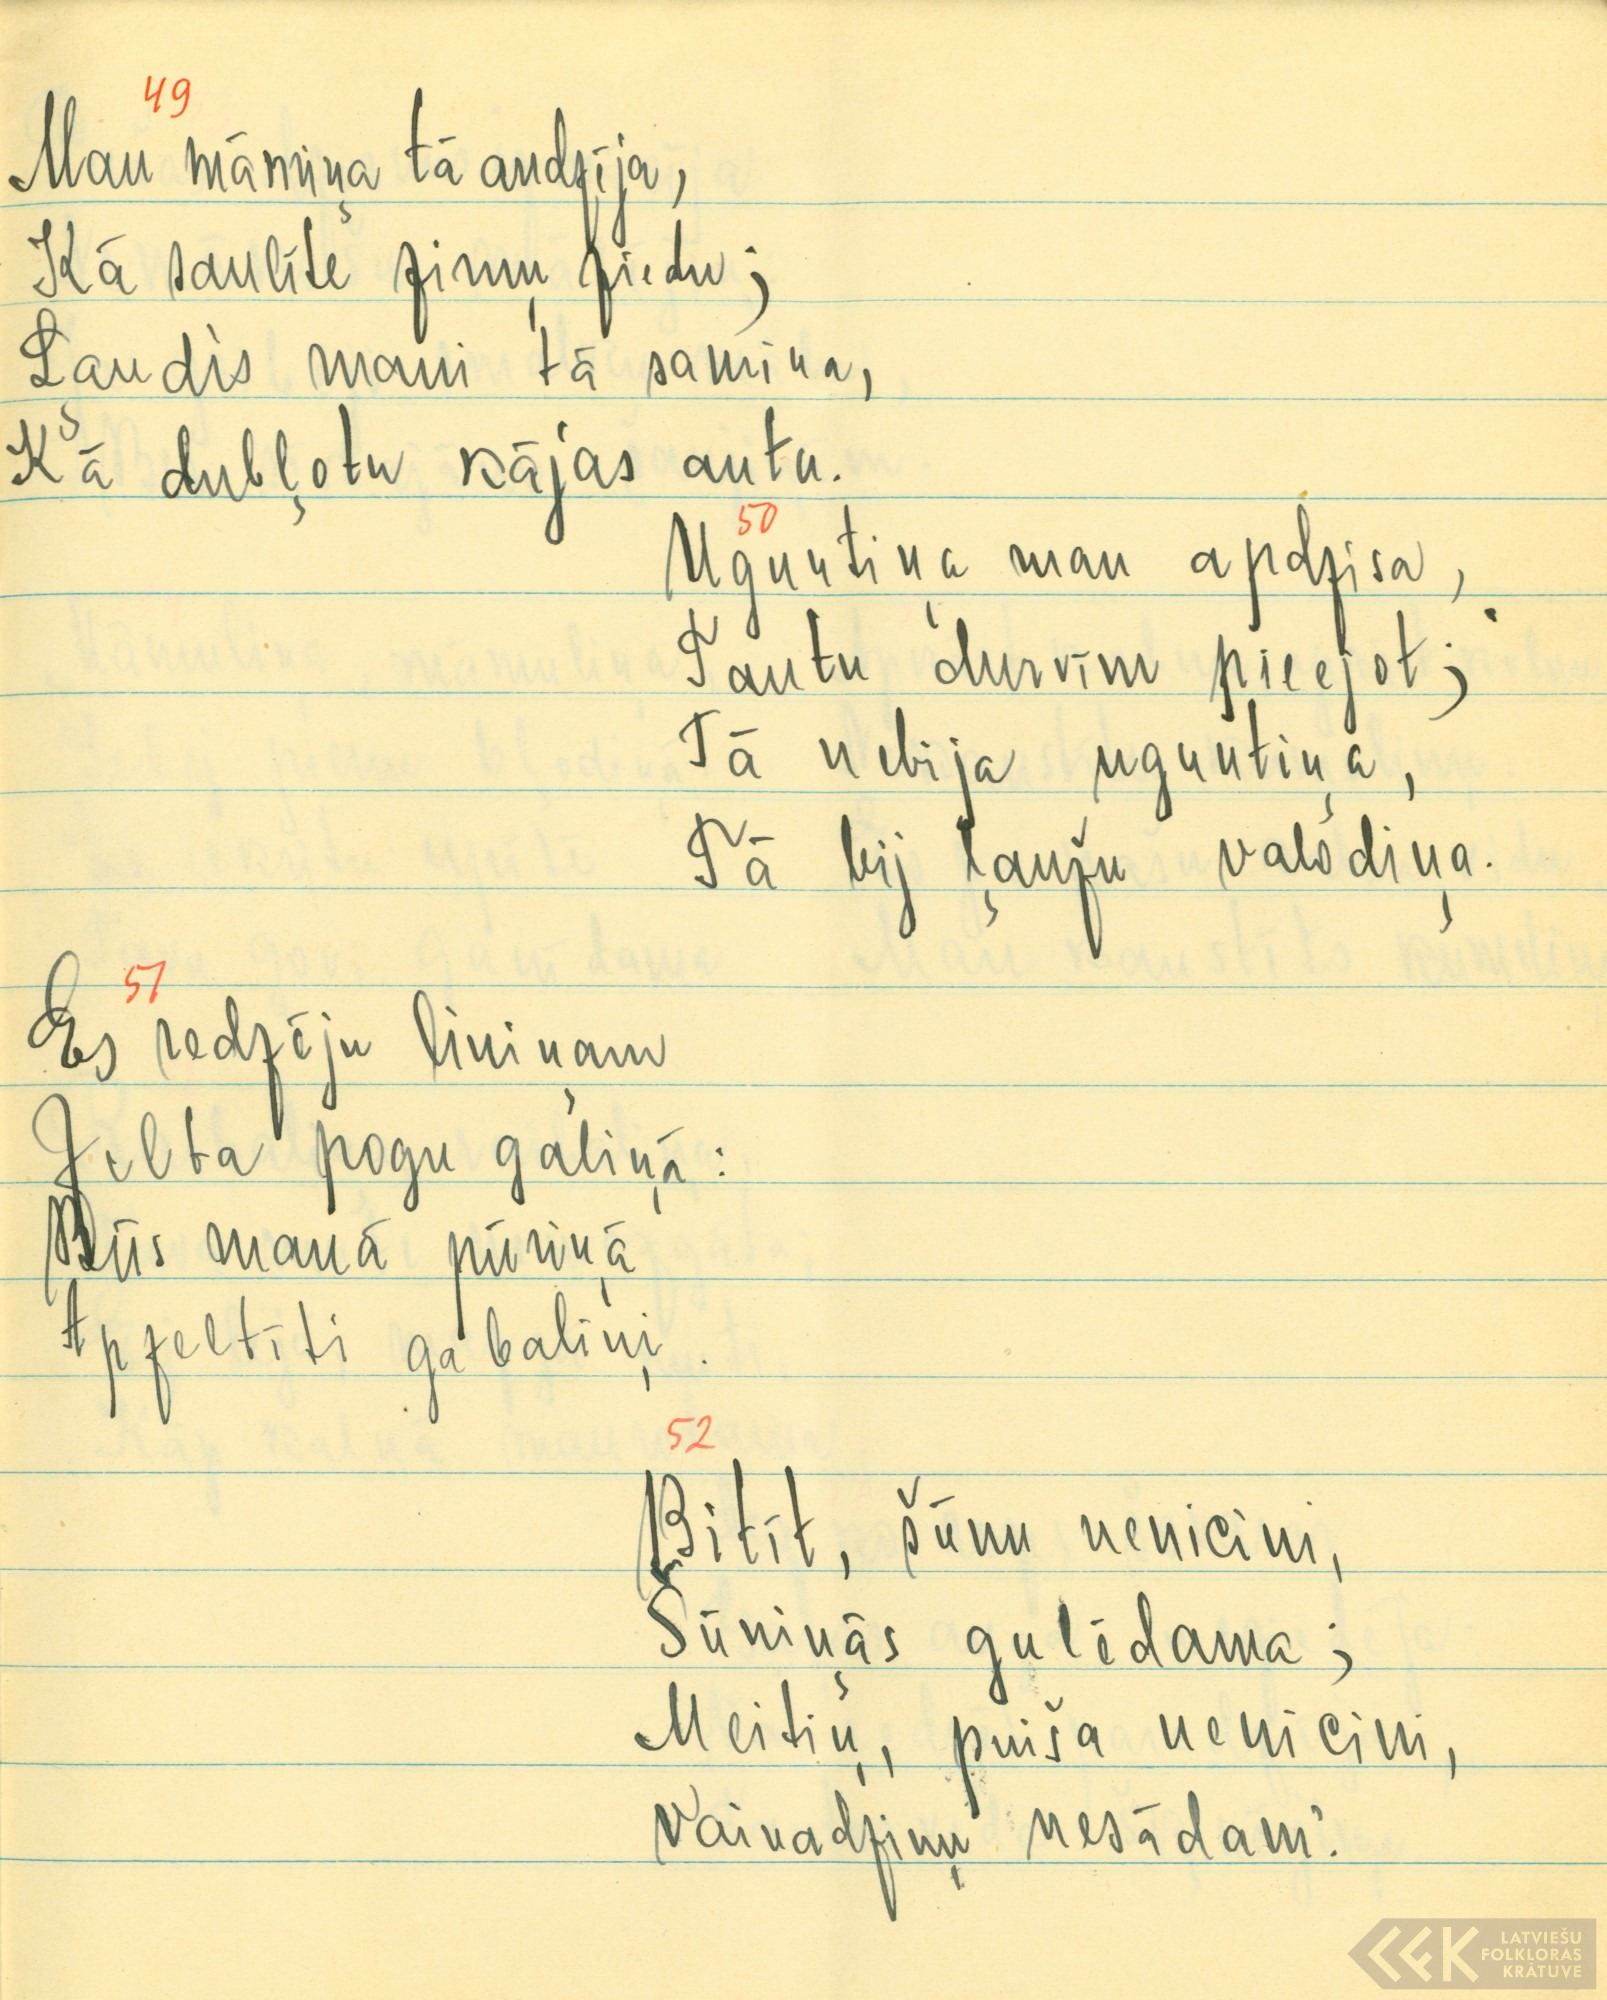 49
Man māmiņa tā audzīja,
Kā saulīte zirņu ziedu;
Ļaudis mani tā samina,
Kā dubļotu kājas autu.
50
Uguntiņa man apdzisa,
Tautu durvīm pieejot;
Tā nebija uguntiņa,
Tā bij ļaužu valodiņa.
51
Es redzēju liniņam
Zelta pogu galiņā:
Būs manā pūriņā
Apzeltīti gabaliņi.
52
Bitīt, šūnu nenicini,
Šūniņās gulēdama;
Meitiņ, puiša nenicini,
Vainadziņu nesādam'.
LATVIEŠU
FOLKLORAS
KRĀTUVE